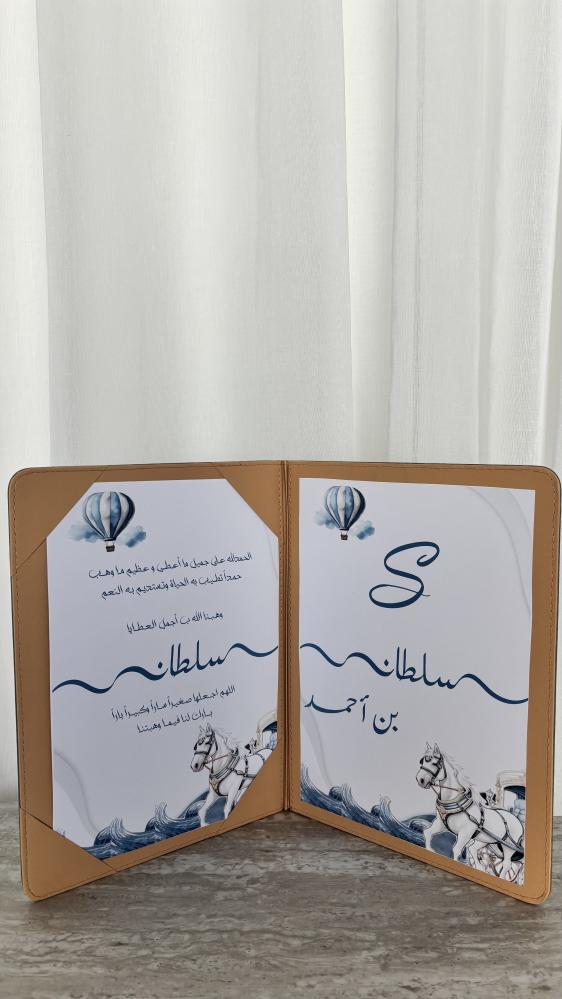 الحمدلله على جميل ما أعطى وعظيم ما وهب
حمداً تطيب به الحياة وتستديم به النعم
وهبنا الله ب أجمل العطايا
سلطان
اللهم اجعلها صغيراً ساراً وكبيراً باراً
بارك لنا فيما وهبتنا
S
سلطان
بن أحمد